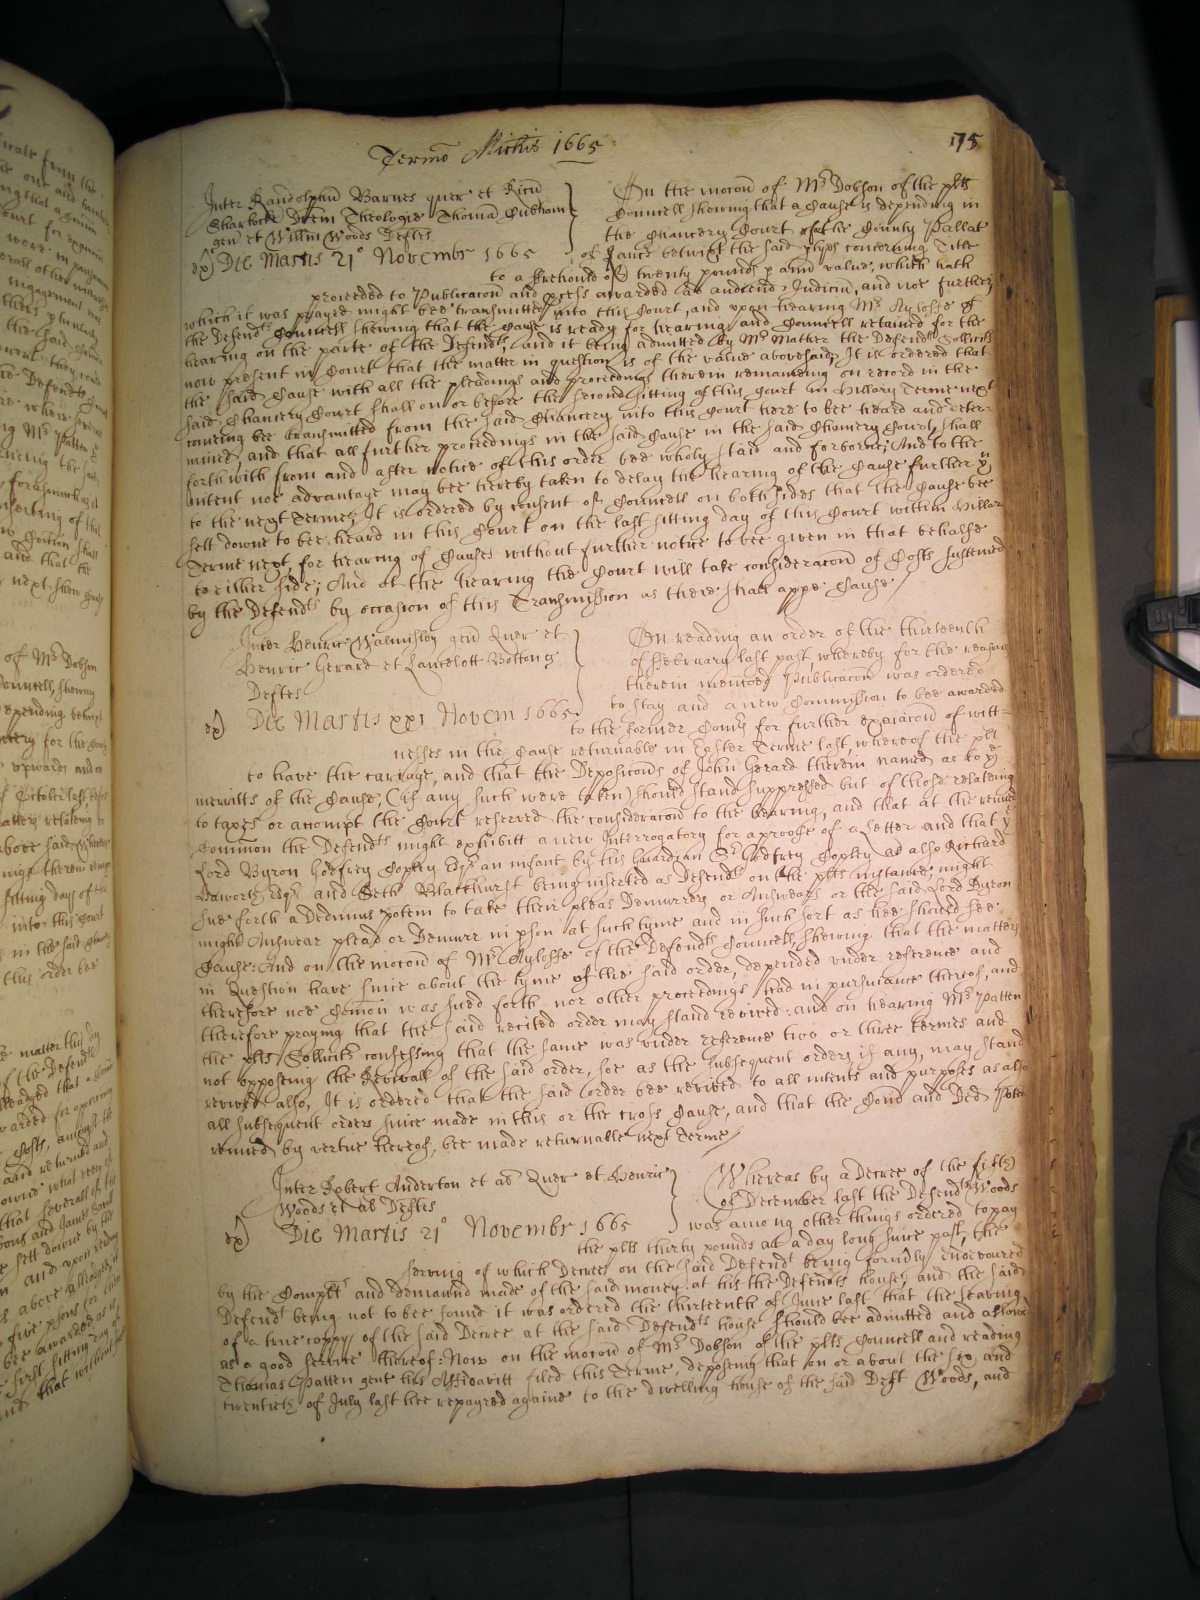 Termo Michis 1665
175
Inter Randolphu Barnes quer et Ricu
Sharlocke Drem Theologie Thoma Cubham
gen et Willm Woods Deftes
ex) Die Martis 21° Novembr 1665
On the mocon of Mr Dobson of the plts
Councell shewing that a Cause is depending in
the Chancery Court of the County Pallat
of Lanc betwixt the said ptyes concerning Title
to a ffreehould of twenty pounds p ann value, which hath
proceeded to Publicacon and pcess awarded ad audiend Judiciu, and noe further
which it was prayed might bee transmitted into this Court, and upon hearing Mr Ayloffe of
the Defendts Councell shewing that the Cause is ready for hearing and Councell retained for the
hearing on the parte of the Defendts and it being admitted by Mr Mather the Defendts Sollicitr
now present in Court that the matter in question is of the value abovesaid, It is ordered that
the said Cause with all the pleadings and proceedings therein remaineing on record in the
said Chancery Court shall on or before the second sitting of this Court in Hillary Terme next
comeing bee transmitted from the said Chancery into this Court here to bee heard and deter-
mined, and that all further proceedings in the said Cause in the said Chancery Court, shall
forthwith from and after notice of this order bee wholy staid and forborne; And to the
intent noe advantage may bee thereby taken to delay the hearing of the Cause further yn
to the next Terme, It is ordered by consent of Councell on both sides that the Cause bee
sett downe to bee heard in this Court on the last sitting day of this Court within Hillar
Terme next, for hearing of Causes without further notice to bee given in that behalfe
to either side; And at the hearing the Court will take consideracon of Costs susteined
by the Defendts by occasion of this Transmission as there shall appe Cause
Inter Henric Walmisley gen Quer et
Henric Gerard et Lancelott Bolton
Deftes
ex) Die Martis xxi Novem 1665
On reading an order of the thirteenth
of ffebruary last past, whereby for the reasons
therein menconed Publicacon was ordered
to stay and a new Commission to bee awarded
to the former Comrs for further exaiacon of witt-
nesses in the Cause returnable in Easter Terme last, whereof the plt
to have the carriage, and that the Deposicons of John Gerard therein named as to ye
merritts of the Cause, (if any such were taken) should stand suppressed but of those relateing
to taxes or accompt the Court reserved the consideracon to the hearing, and that at the renued
Commion the Defendts might exhibitt a new Interrogatory for a proofe of a Letter and that ye
Lord Byron Godfrey Copley Esqr an infant by his Guardian Sr Godfrey Copley as also Richard
Haworth Esqr and Seth Blackhurst being inserted as Defendts on the plts instance, might
sue forth a Dedimus potem to take their pleas Demurrers or Answears or the said Lord Byron
might Answear plead or Demurr in pson at such tyme and in such sort as hee should see
Cause: And on the mocon of Mr Ayloffe of the Defendts Councell, shewing that the matters
in Question have since about the tyme of the said order, depended under reference and
therefore noe Comion was sued forth nor other proceedings had in pursuance thereof, and
therefore praying that the said recited order may stand revived: and on hearing Mr Patten
the plts Sollicitr confessing that the same was under reference two or three termes and
not opposing the Revivall of the said order, soe as the subsequent orders if any, may stand
revived also, It is ordered that the said order bee revived to all intents and purposes as also
all subsequent orders since made in this or the cross Cause, and that the Comn and Ded Potem
renued by vertue hereof, bee made returnable next Terme
Inter Robert Anderton et al Quer et Henric
Woods et al Deftes
ex) Die Martis 21° Novembr 1665
Whereas by a Decree of the fifth
of December last the Defendt Woods
was among other things ordered to pay
the plts thirty pounds att a day long since past, the
serving of which Decree on the said Defendt being formerly endeavoured
by the Complts and demaund made of the said money at his the Defendts house, and the said
Defendt being not to bee found it was ordered the thirteenth of June last that the leaving
of a true coppy of the said Decree at the said Defendts house should bee admitted and allowed
as a good service thereof: Now on the mocon of Mr Dobson of the plts Councell and reading
Thomas Patten gent his Affidavitt filed this Terme, deposeing that on or about the six and
twentieth of July last hee repayred againe to the dwelling house of the said Deft Woods, and